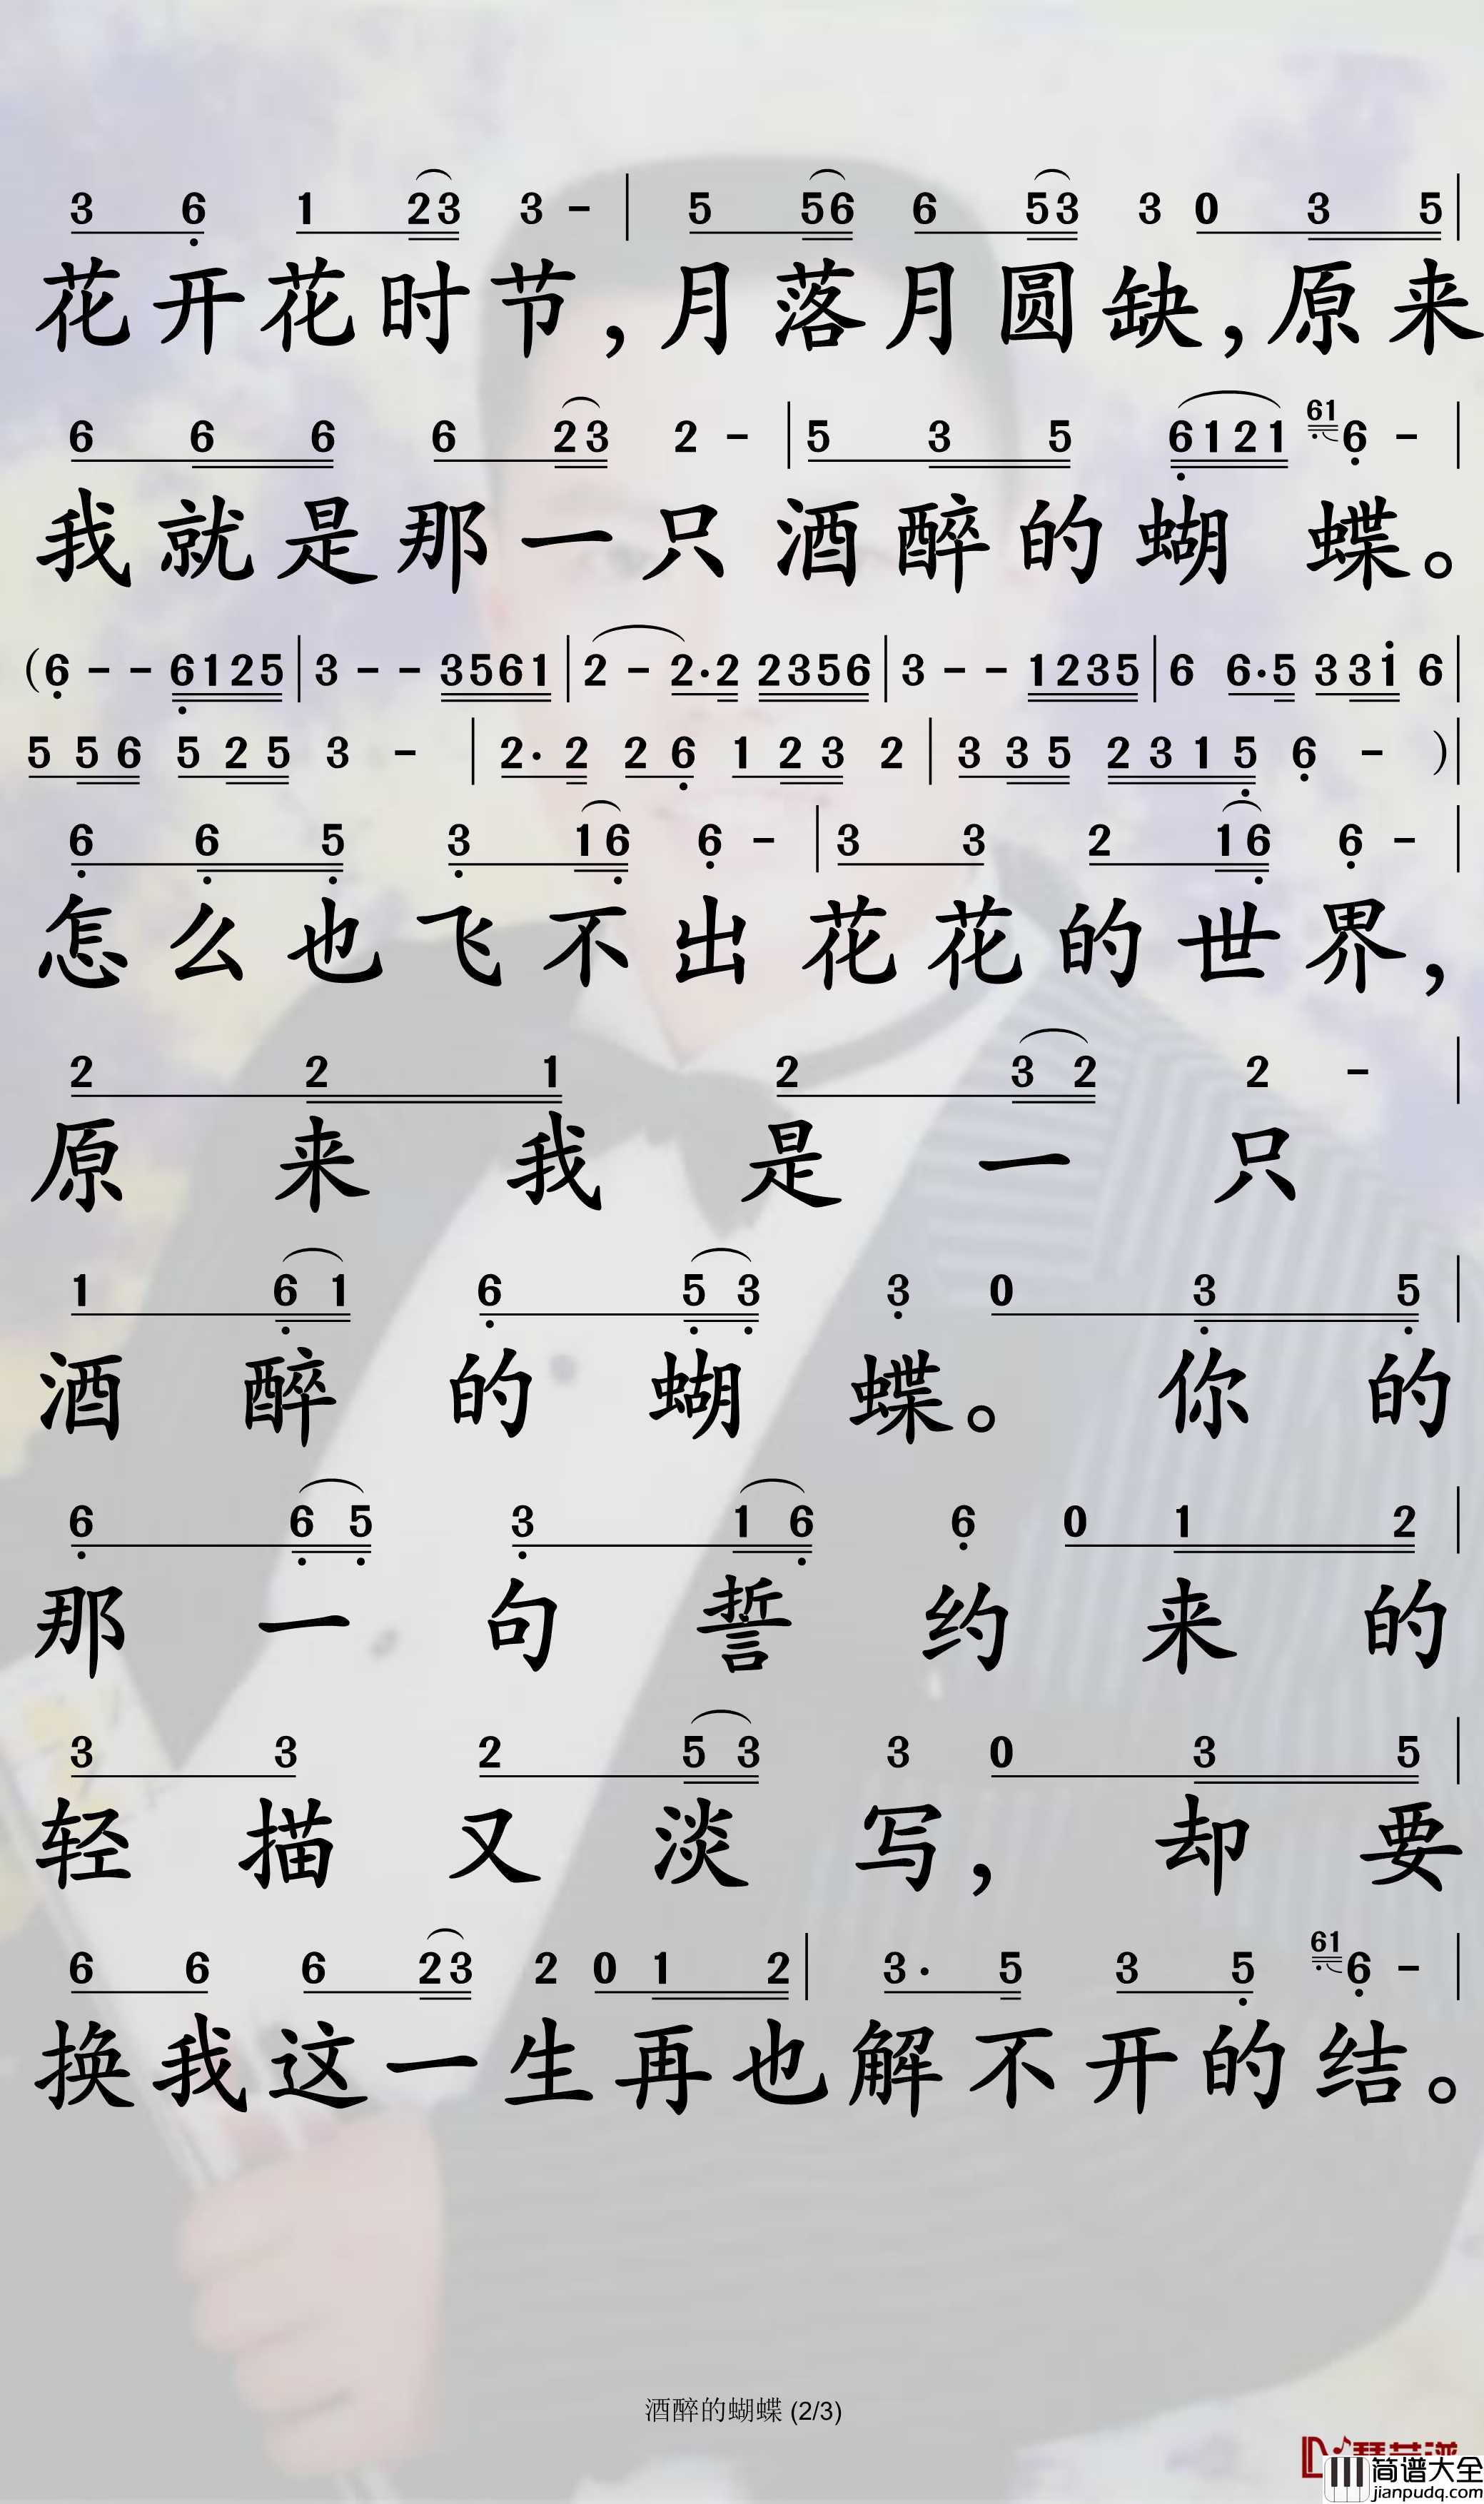 3 6 1 23 3 - | 5 56 6 53 3 0 3 5 |
花开花时节,月落月圆缺,原来
6 6 6 6 23 2 - | 5 3 5 6121 61 6 - |
我就是那一只酒醉的蝴蝶。
(6 - - 6125 | 3 - - 3561 | 2 - 2·2 2356 | 3 - - 1235 | 6 6·5 33i 6 |
5 56 5 25 3 - | 2· 2 2 6 1 23 2 | 3 35 2315 6 - ) |
6 6 5 3 16 6 - | 3 3 2 16 6 - |
怎么也飞不出花花的世界,
2 2 1 2 3 2 2 - |
原来我是一只
1 6 1 6 5 3 3 0 3 5 |
酒醉的蝴蝶。你的
6 6 5 3 1 6 6 0 1 2 |
那一句誓约来的
3 3 2 5 3 3 0 3 5 |
轻描又淡写,却要
6 6 6 23 2 0 1 2 | 3· 5 3 5 61 6 - |
换我这一生再也解不开的结。
酒醉的蝴蝶 (2/3)
简谱大全
jianpudq.com